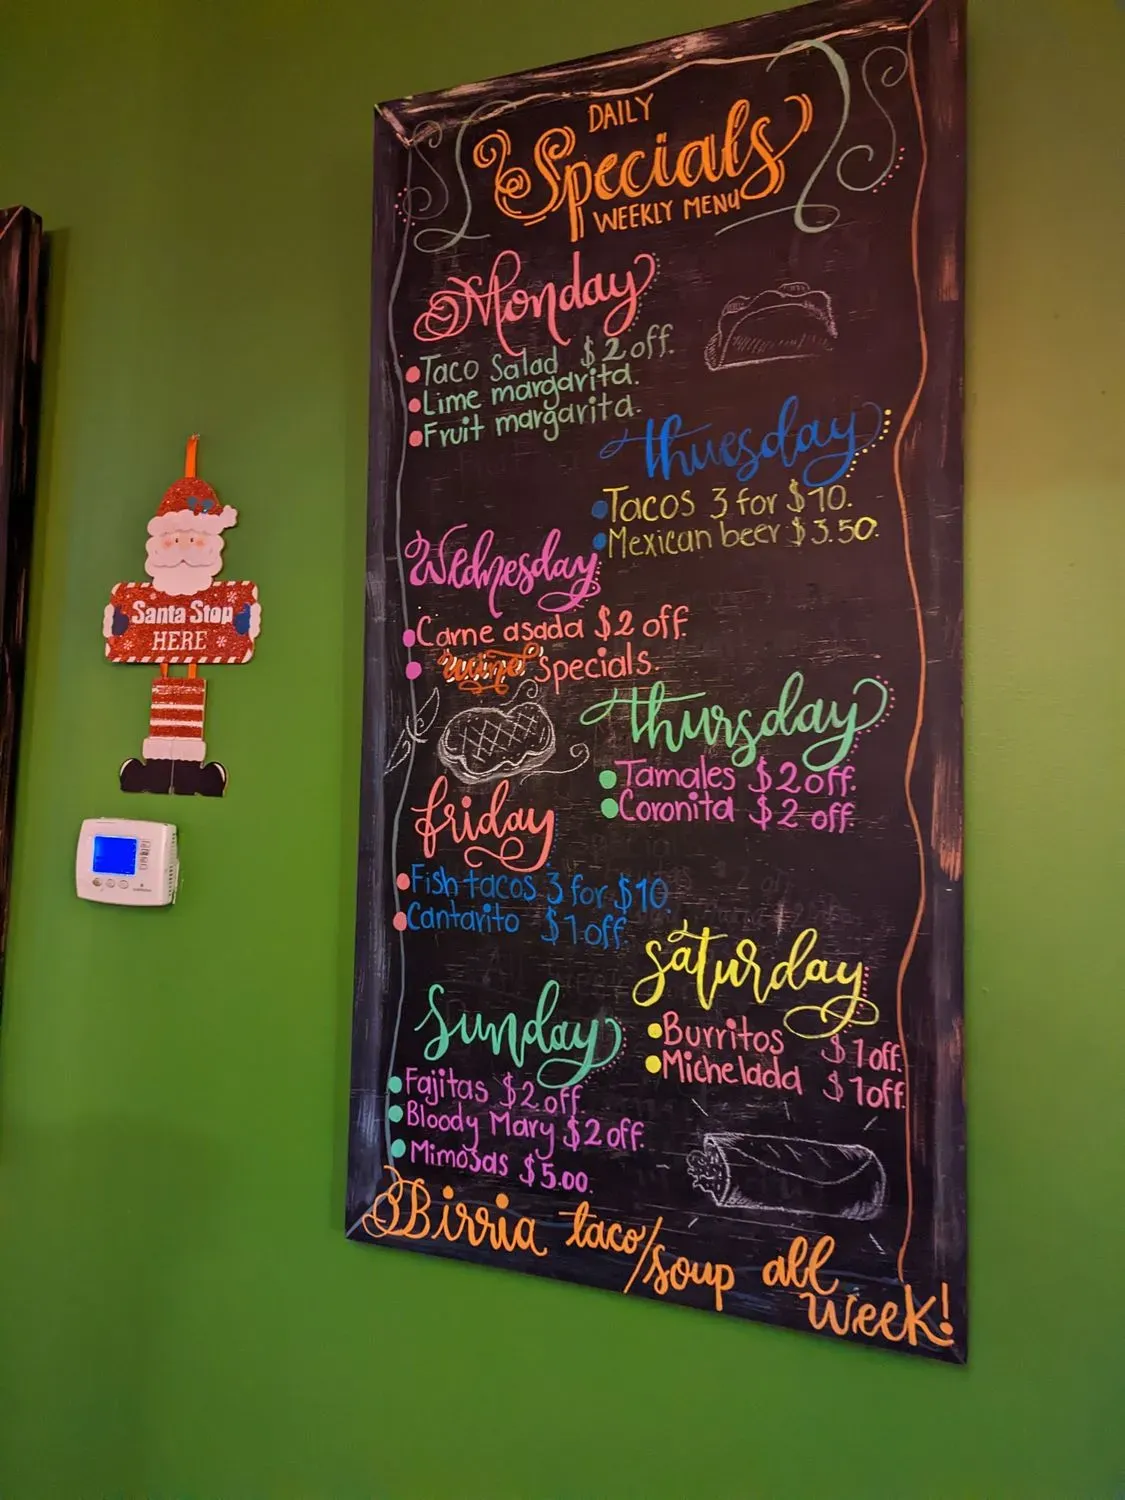 DAILY
Specials
WEEKLY MENU
Monday
Taco Salad $2 off.
Lime margarita.
Fruit margarita.
Thuesday
Tacos 3 for $10.
Mexican beer $3.50.
Wednesday
Carne asada $2 off.
wine Specials.
Thursday
Tamales $2 off.
Coronita $2 off.
friday
Fish tacos 3 for $10
Cantarito $1 off.
Saturday
Burritos $1 off.
Michelada $1 off.
Sunday
Fajitas $2 off.
Bloody Mary $2 off.
Mimosas $5.00.
Birria taco/
soup all
week!
Santa Stop
HERE